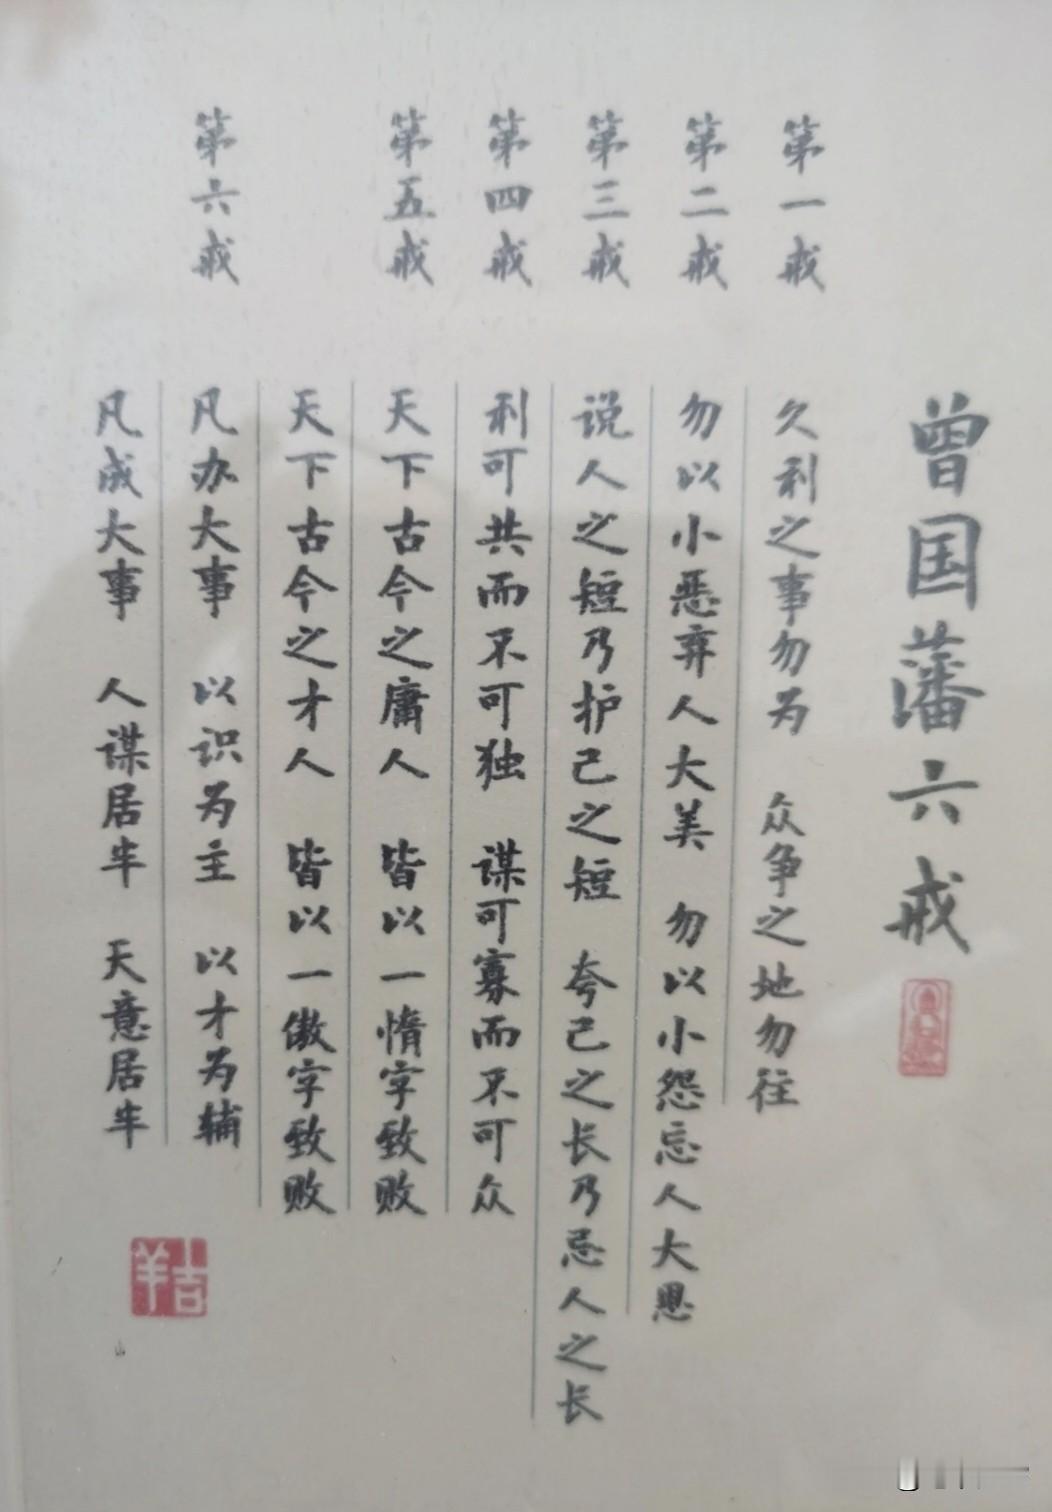 曾国藩六戒
第一戒 久利之事勿为 众争之地勿往
第二戒 勿以小恶弃人大美 勿以小怨忘人大恩
第三戒 说人之短乃护己之短 夸己之长乃忌人之长
第四戒 利可共而不可独 谋可寡而不可众
第五戒 天下古今之庸人 皆以一惰字致败
天下古今之才人 皆以一傲字致败
第六戒 凡办大事 以识为主 以才为辅
凡成大事 人谋居半 天意居半
吉羊